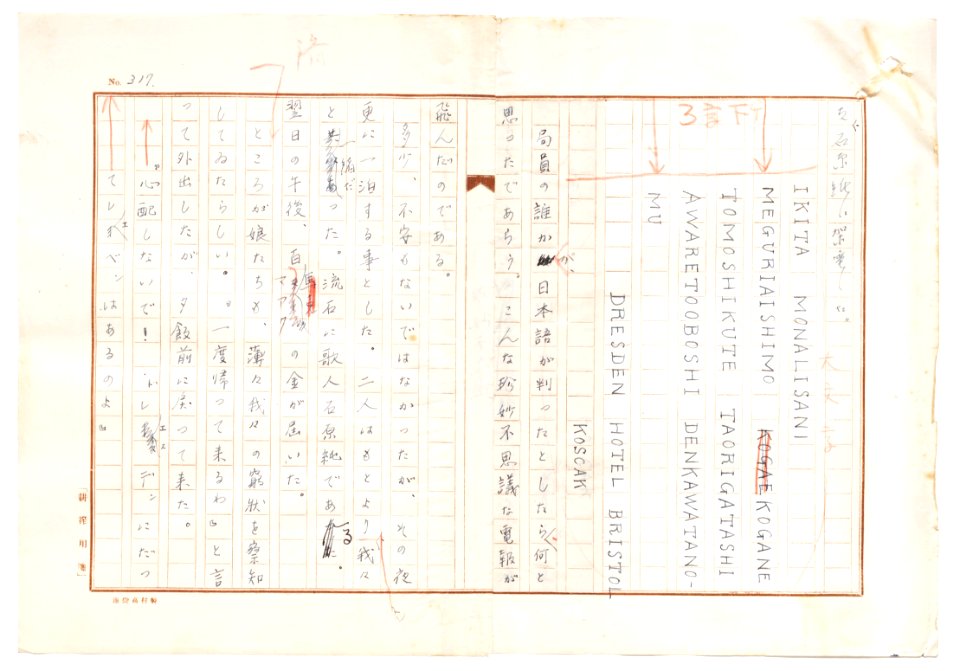 No. 317.
済
3字下ゲ
IKITA MONALISANI
MEGURIAISHIMO KOGAE KOGANE
TOMOSHIKUTE TAORIGATASHI
AWARETOOBOSHI DENKAWATANO-
MU
DRESDEN HOTEL BRISTOL
KOSCAK
局員の誰かが、日本語が判ったとしたら、何と
思ったであらう。こんな珍妙不思議な電報が
飛んだのである。
多少、不安もないではなかったが、その夜
更に一泊する事とした。二人はもとより我々
と一緒だった。流石に歌人石原純である。
翌日の午後、百馬克の金が届いた。
マアク
ところが娘たちも、薄々我々の窮状を察知
してゐたらしい。『一度帰って来るわ』と言
って外出したが、夕飯前に戻って来た。
『心配しないで！ドレエスデンにだっ
てレエベンはあるのよ』